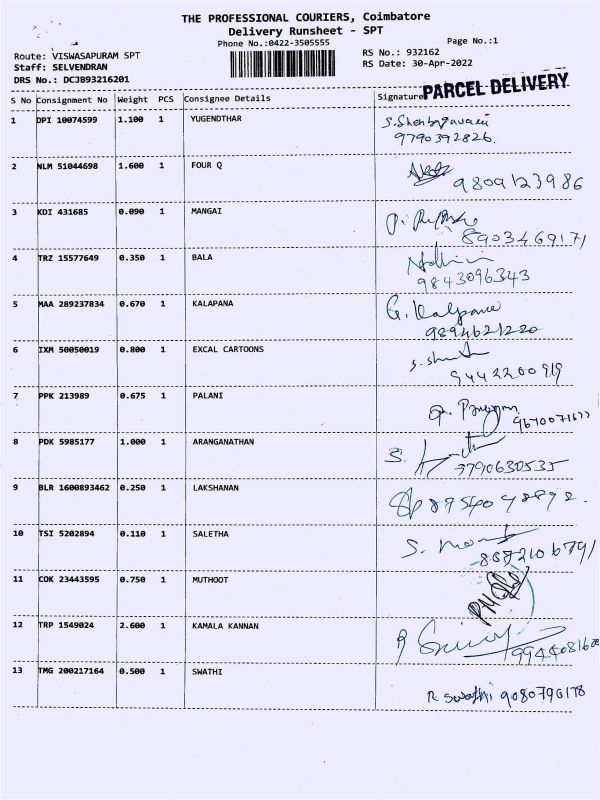 THE PROFESSIONAL COURIERS, Coimbatore
Delivery Runsheet - SPT
Phone No.:0422-3505555
Page No.:1
Route: VISWASAPURAM SPT
RS No.: 932162
Staff: SELVENDRAN
RS Date: 30-Apr-2022
DRS No.: DCJB93216201
PARCEL DELIVERY
S No Consignment No Weight PCS Consignee Details Signature
1 DPI 10074599 1.100 1 YUGENDTHAR
9790392826.
2 NLM 51044698 1.600 1 FOUR Q
9809123986
3 KDI 431685 0.090 1 MANGAI
8903469171
4 TRZ 15577649 0.350 1 BALA
9843096343
5 MAA 289237834 0.670 1 KALAPANA G. Kalpana
9894621220
6 IXM 50050019 0.800 1 EXCAL CARTOONS
9442200919
7 PPK 213989 0.675 1 PALANI
8 PDK 5985177 1.000 1 ARANGANATHAN
9790630535
9 BLR 1600893462 0.250 1 LAKSHANAN
10 TSI 5202894 0.110 1 SALETHA
11 COK 23443595 0.750 1 MUTHOOT
12 TRP 1549024 2.600 1 KAMALA KANNAN
13 TMG 200217164 0.500 1 SWATHI
R Swathi 9080790178